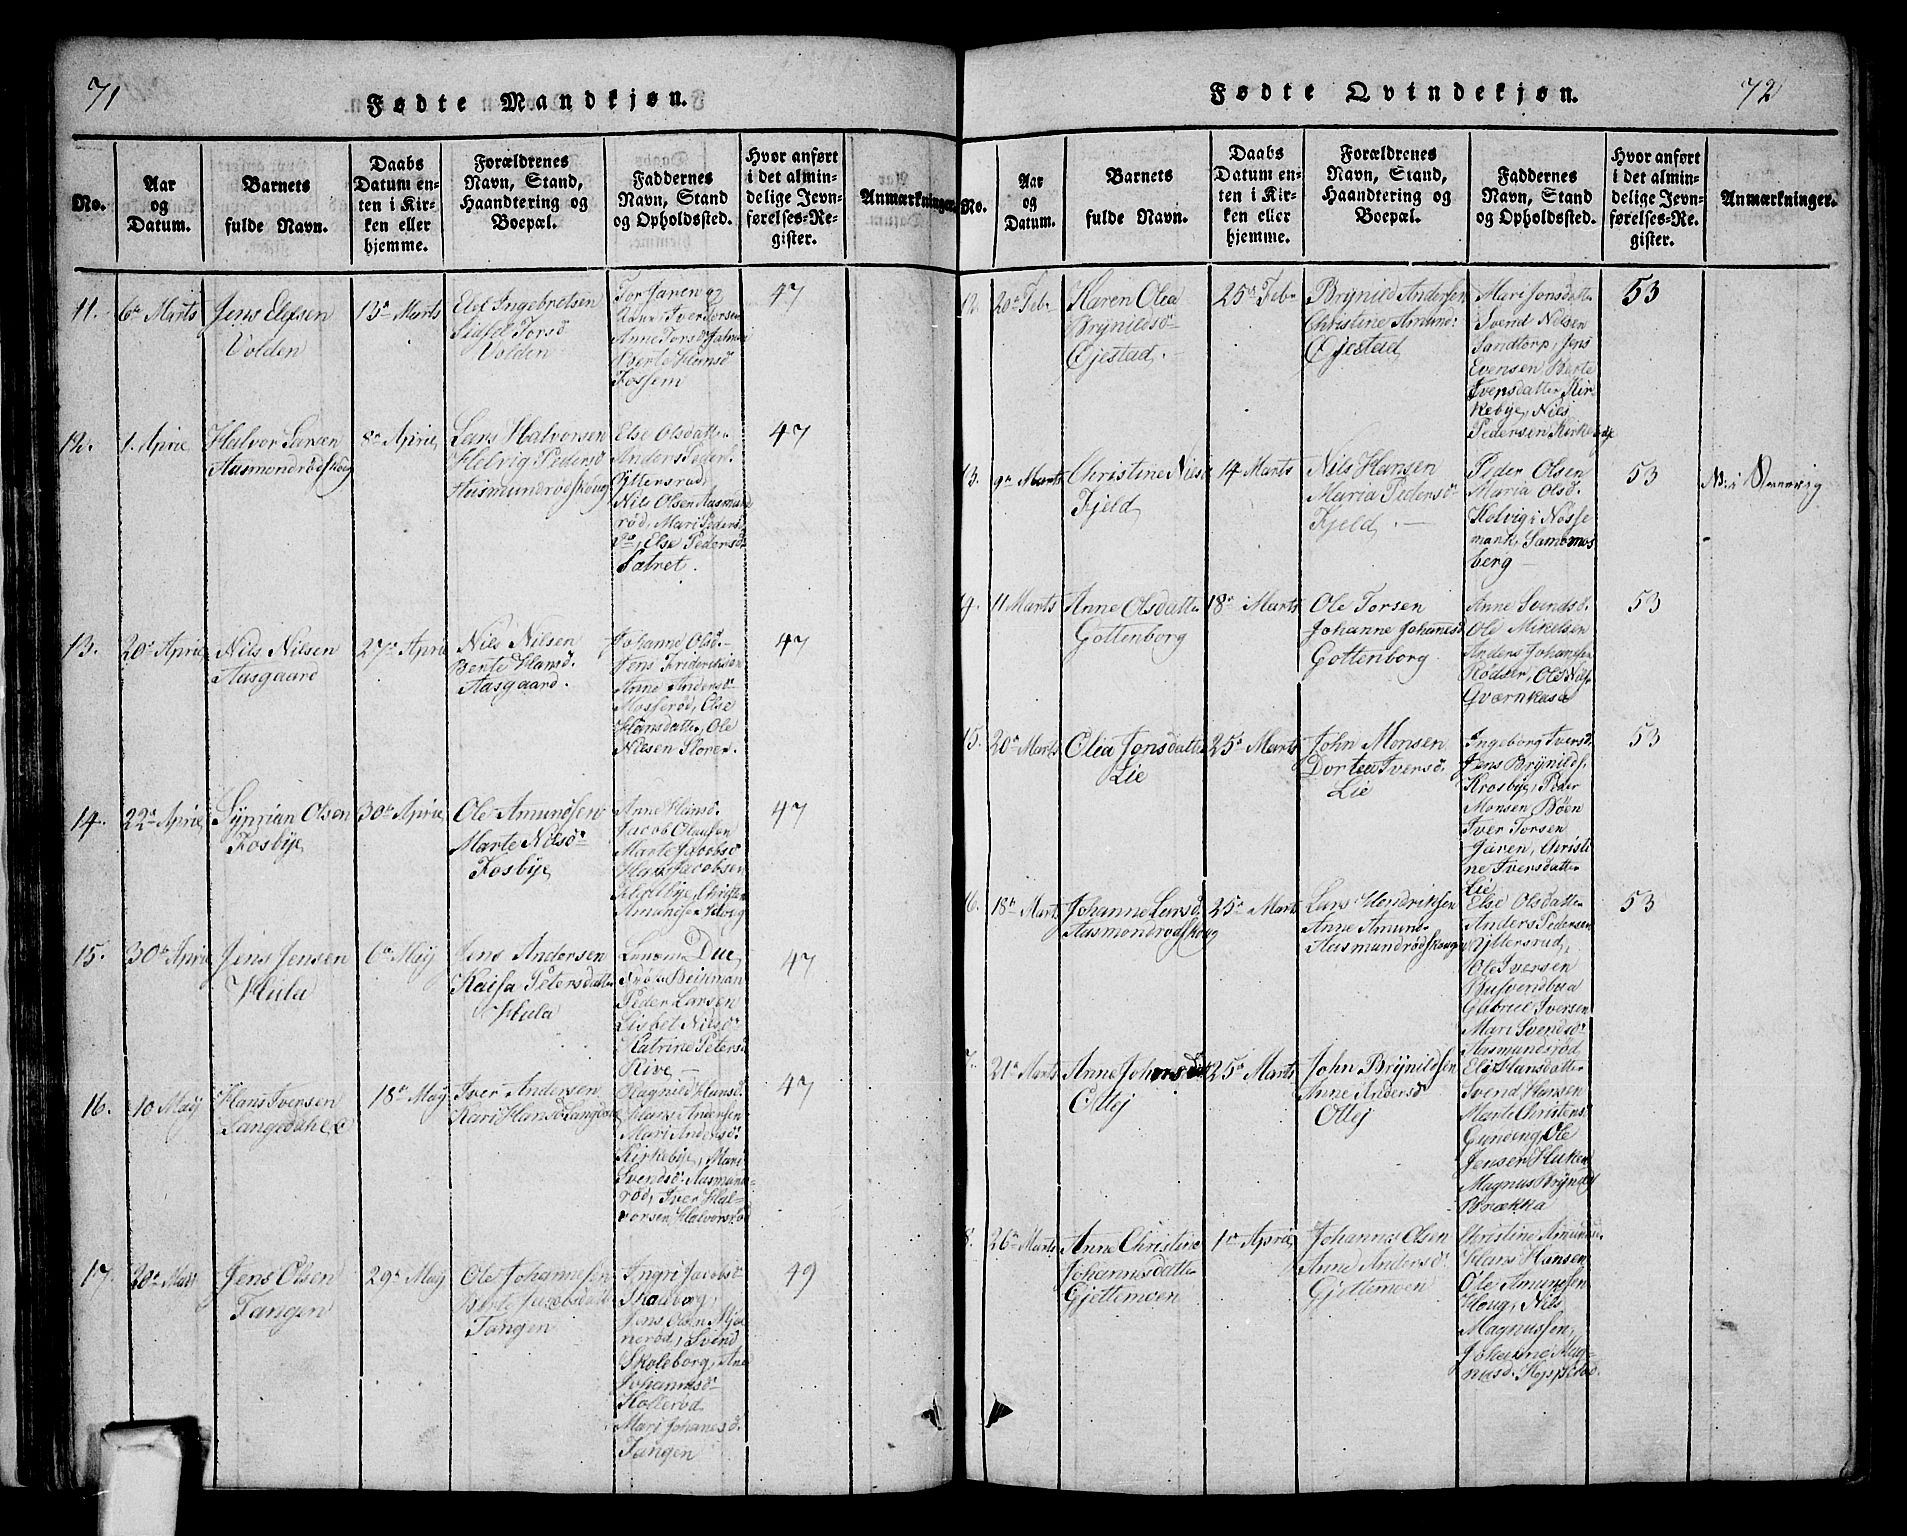 71
Fødte Mandkjøn.
No.
Aar
og
Datum.
Barnets
fulde Navn.
Daabs
Datum en-
ten i Kir-
ken eller
hjemme.
Forældrenes
Navn, Stand,
Haandtering og
Boepæl.
Faddernes
Navn, Stand
og Opholdsted.
Hvor anført
i det almin-
delige Jevn-
førelses-Re-
gister.
Anmærkninger.
11.
6te Marts
Jens Elefsen
Volden
13de Marts
Elef Ingebretsen
Torsd
Volden
Tor Jaren og
Anne Iversdatter
Anne Torsd Jaren
Berte Hansd
Fossem
47
12.
1. April
Halvor Larsen
Aasmondrødskoug
8de April
Lars Halvorsen
Helvig Pedersd
Aasmundrødskoug
Else Olsdatter
Anders Peders
Yttersrød
Nils Olsen Aasmund
rød, Mari Peders
do, Else Pedersd
Satret.
47
13.
20de April
Nils Nilsen
Aasgaard
27de April
Nils Nilsen
Bente Hansd.
Aasgaard.
Johanne Olsd.
Jens Friderichsen
Anne Andersd
Mosserød, Else
Hansdatter, Ole
Nilsen Store.
47
14.
22de April
Syprian Olsen
Fosbye
30te April
Ole Amundsen
Marte Nilsd
Fosbye
Anne Hansd.
Jacob Olausen
Marte Jacobsd
Hans Jacobsen
47
15.
30te April
Jens Jensen
Hula
6te May
Jens Andersen
Kaisa Petersdatter
Hula
Due,
Beichman
Peder Larsen
Lisbet Nilsd
Katrine Petersd
Rive
47
16.
10 May
Hans Iversen
Langedahl
18de May
Iver Andersen
Kari Hansd Langdal
Olagnild Hansd.
Hans Andersen
Mari Andersd.
Kirkebye, Mari
Svendsd. Aasmund-
rød, Iver Hal-
vorsen Halvorsrød
47
17.
20de May
Jens Olsen
Tangen
29de May
Ole Johannesen
Berte Jacobsdatter
Tangen
Ingri Jacobsd
Skaaborg,
Jens Olsen
nerød, Svend
Skoleborg, Ane
Johannesd
Kollerød
Mari Johanesd.
Tangen
49
72
Fødte Qvindekjøn.
No.
Aar
og
Datum.
Barnets
fulde Navn.
Daabs
Datum en-
ten i Kir-
ken eller
hjemme.
Forældrenes
Navn, Stand,
Haandtering og
Boepæl.
Faddernes
Navn, Stand
og Opholdsted.
Hvor anført
i det almin-
delige Jevn-
førelses-Re-
gister.
Anmærkninger.
12.
20de Feb
Karen Olea
Brynildsd
Ojestad.
25de Feb
Brynild Andersen
Christine Amund:
Ojestad
Mari Jonsdatter
Svend Nilsen
Sandtorp, Jens
Evensen Berte
Iversdatter Kir
kebye, Nils
Pedersen Kirkebye
53
13.
9de Marts
Christine Nilsd
Fjeld
14 Marts
Nils Hansen
Maria Pedersd
Fjeld.
Peder Olsen
Maria Olsd.
Kolvig i Nøsse
mark, Sammos
berg
53
14.
11 Marts
Anne Olsdatter
Gottenborg
18de Marts
Ole Torsen
Johanne Johanesd
Gottenborg
Anne Svendsd.
Ole Mikelsen
Anders Johansen
Rødser, Ole Nils
Gværnkasa
53
15.
20de Marts
Olea Jonsdatter
Lie
25de Marts
John Monsen
Dortea Iversd.
Lie
Ingeborg Iversd.
Jens Brynilds.
Krosbye, Peder
Monsen Bøen
Iver Torsen
Jaren, Christi
ne Iversdatter
Lie
53
16.
18de Marts
Johanne Larsd.
Aasmondrødskoug
25de Marts
Lars Hendriksen
Anne Amund
Aasmundrødskoug
Else Olsdatter
Anders Pedersen
Yttersrud,
Ole Iversen
Busvendbua
Gabriel Iversen
Mari Svendsd
Aasmundsrød
53
7.
21de Marts
Anne Johansdt
Ottej
25de Marts
John Brynildsen
Anne Andersd
Ottej
Eli Hansdatter
Svend Hansen
Marte Christens
Guneng, Ole
Jensen Huken
Magnus Bryn
Brækka
8.
26de Marts
Anne Christine
Johannsdatter
Gjettemoen
1te April
Johannes Olsen
Anne Andersd.
Gjettemoen
Christine Amunds
Hans Hansen
Ole Amundsen
Houg, Nils
Magnussen,
Johanne Mag-
nusd.